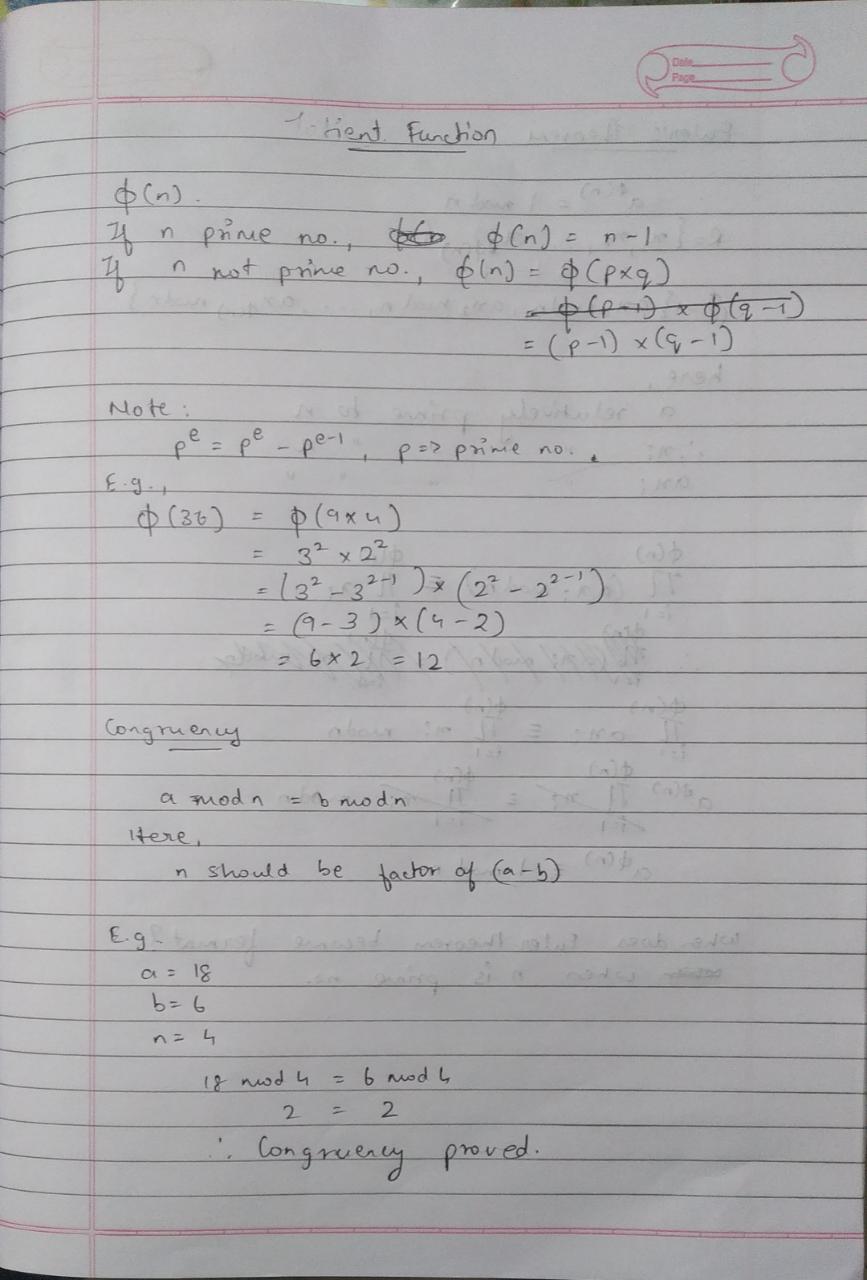 Date
Page
Totient Function
ϕ(n).
If n prime no., ϕ(n) = n-1
If n not prime no., ϕ(n) = ϕ(p×q)
= ϕ(p-1) × ϕ(q-1)
= (p-1) × (q-1)
Note:
p^e = p^e - p^(e-1), p => prime no.
E.g.,
ϕ(36) = ϕ(9×4)
= 3² × 2²
= (3² - 3^(2-1)) × (2² - 2^(2-1))
= (9-3) × (4-2)
= 6×2 = 12
Congruency
a mod n = b mod n
Here,
n should be factor of (a-b)
E.g.
a = 18
b = 6
n = 4
18 mod 4 = 6 mod 4
2 = 2
∴ Congruency proved.